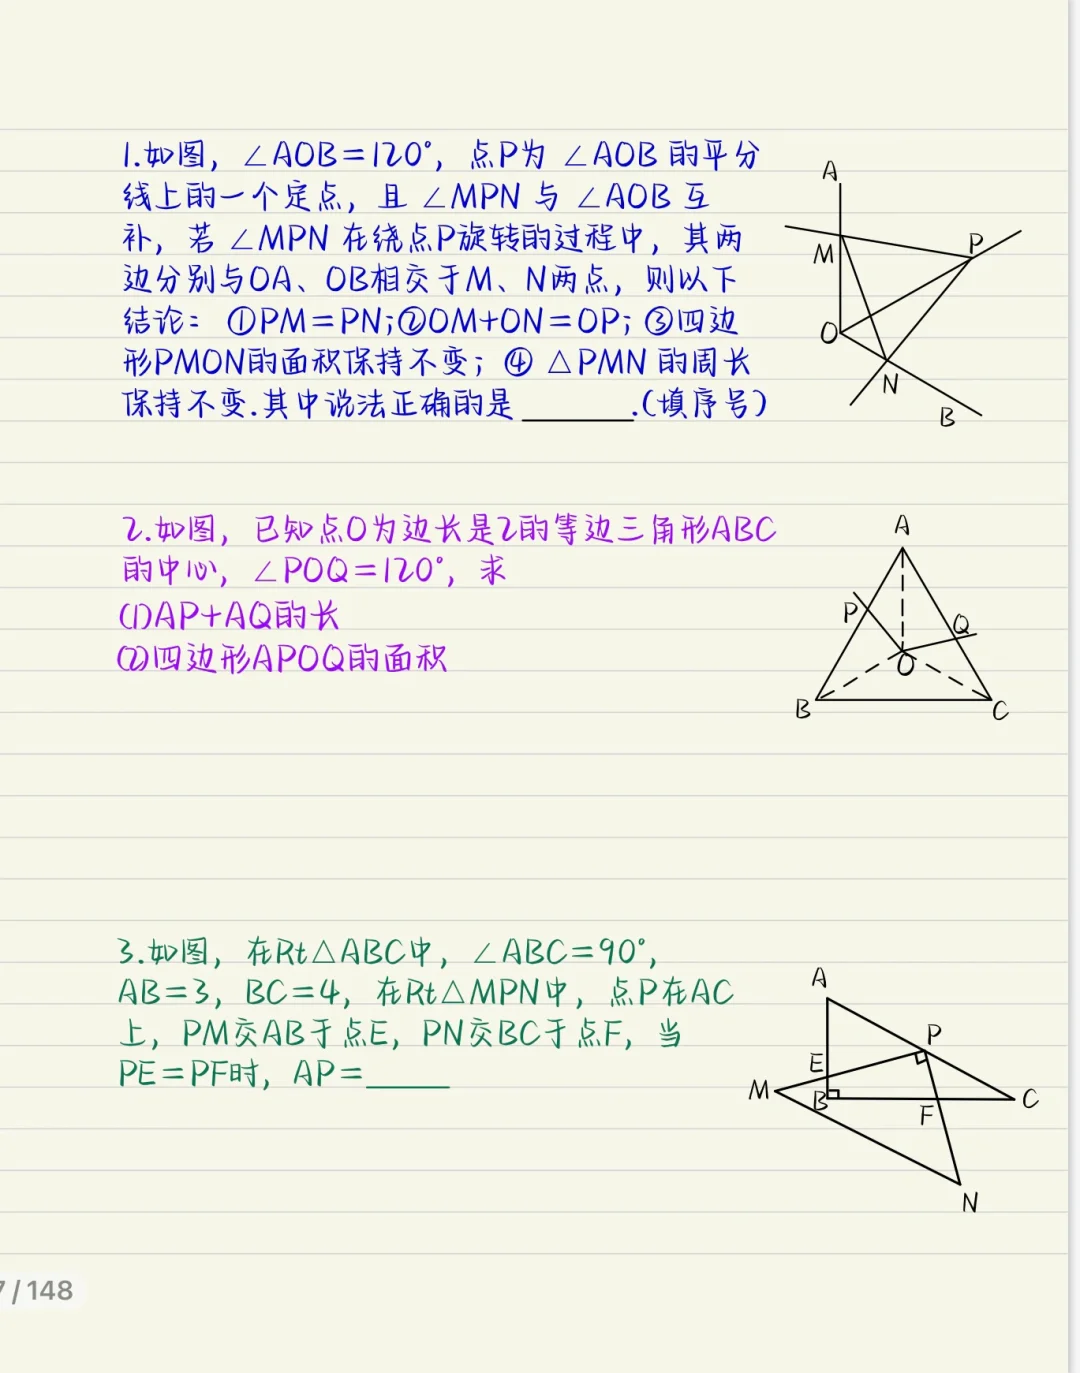 1.如图，∠AOB=120°，点P为∠AOB的平分
线上的一个定点，且∠MPN与∠AOB互
补，若∠MPN在绕点P旋转的过程中，其两
边分别与OA、OB相交于M、N两点，则以下
结论：①PM=PN;②OM+ON=OP；③四边
形PMON的面积保持不变；④△PMN的周长
保持不变.其中说法正确的是______.(填序号)
A
M
P
O
N
B
2.如图，已知点O为边长是2的等边三角形ABC
的中心，∠POQ=120°，求
(1)AP+AQ的长
(2)四边形APOQ的面积
A
P
Q
O
B
C
3.如图，在Rt△ABC中，∠ABC=90°，
AB=3，BC=4，在Rt△MPN中，点P在AC
上，PM交AB于点E，PN交BC于点F，当
PE=PF时，AP=_____
A
P
E
M
B
F
C
N
7/148